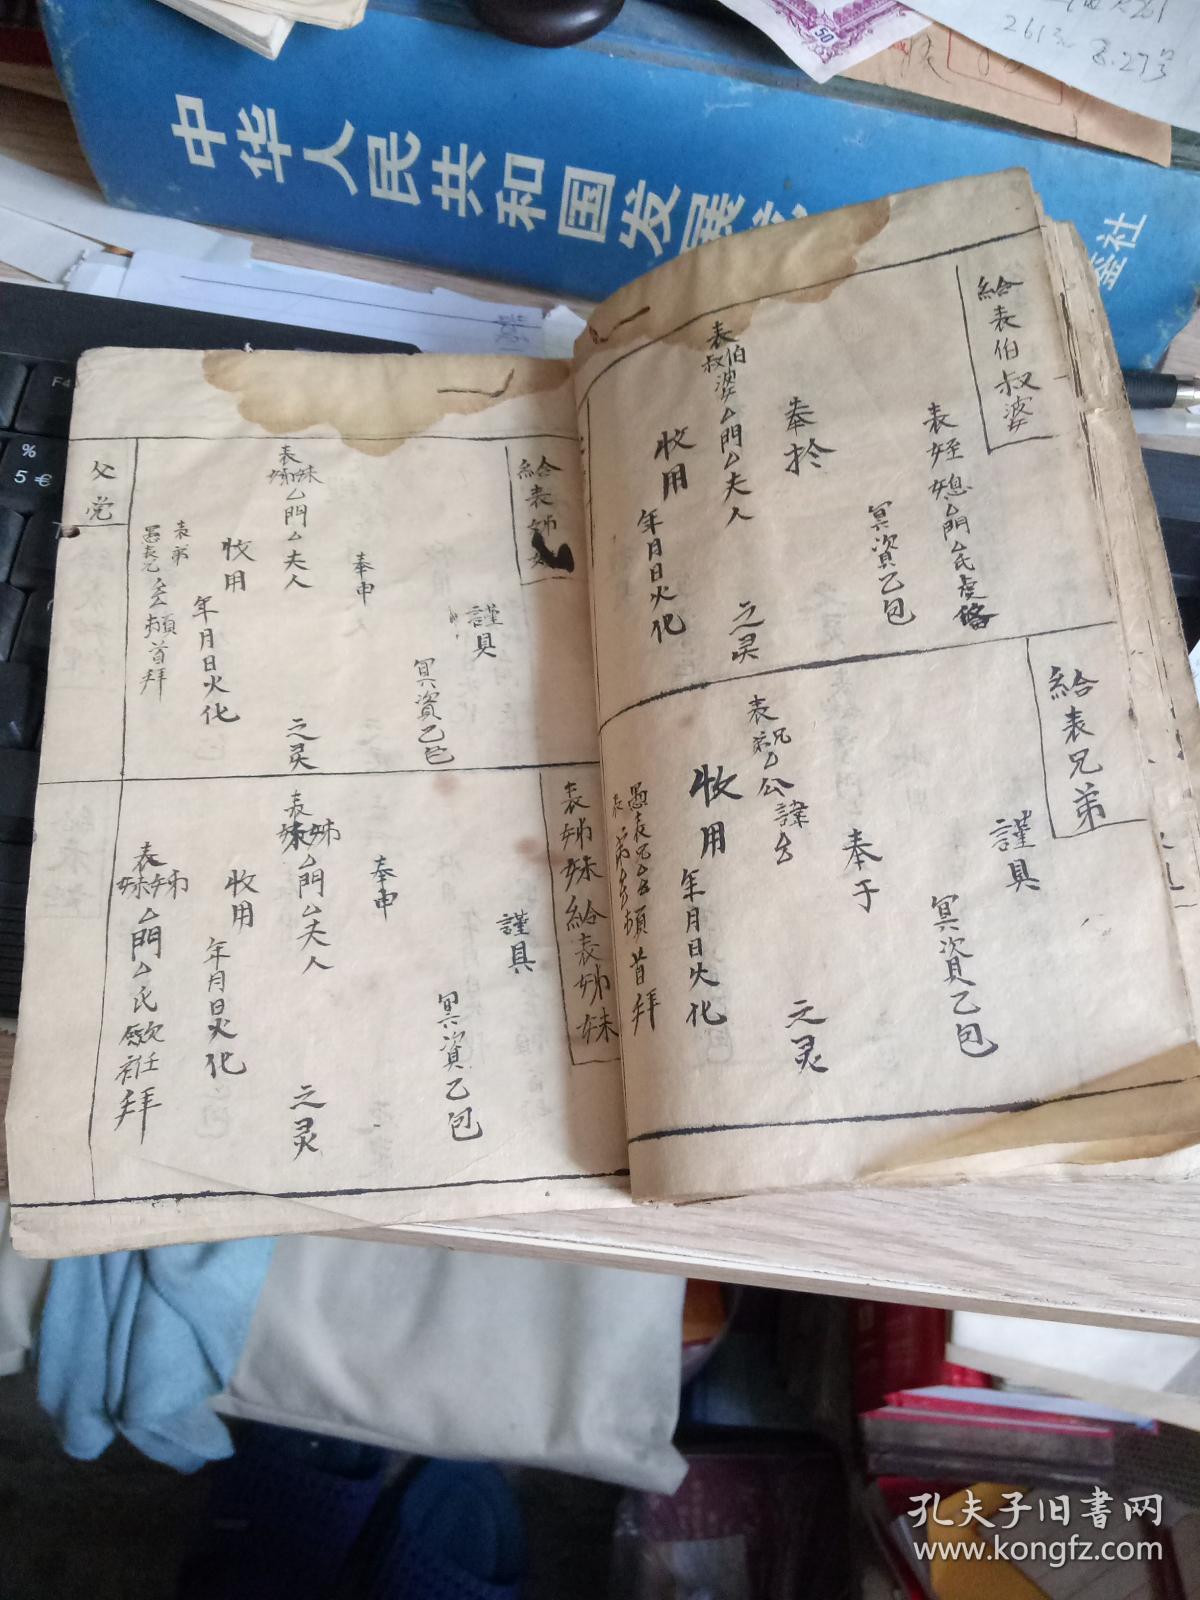 中华人民共和国发展
鉴社
50
給表伯叔婆
表姪媳厶門厶氏虔備
冥資乙包
奉於
表伯叔婆厶門厶夫人
之灵
收用
年月日火化
給表兄弟
謹具
冥資乙包
奉于
表兄弟厶公諱厶
之灵
收用
年月日火化
愚表兄
表弟
頓首拜
給表姊妹
謹具
冥資乙包
奉申
表姊妹厶門厶夫人
之灵
收用
年月日火化
表弟
愚表兄
厶厶頓首拜
父党
表姊妹給表姊妹
謹具
冥資乙包
奉申
表姊妹厶門厶夫人
之灵
收用
年月日火化
表姊妹厶門厶氏歛衽拜
F4
%
5 €
孔夫子旧书网
www.kongfz.com